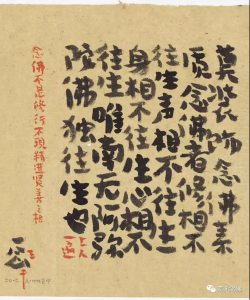 莫装饰念佛素
质念佛者修相不
往生相不往生
身相不往生心相不
往生唯南无阿弥
陀佛独往生也
念佛不是修行不现精进贤善之相